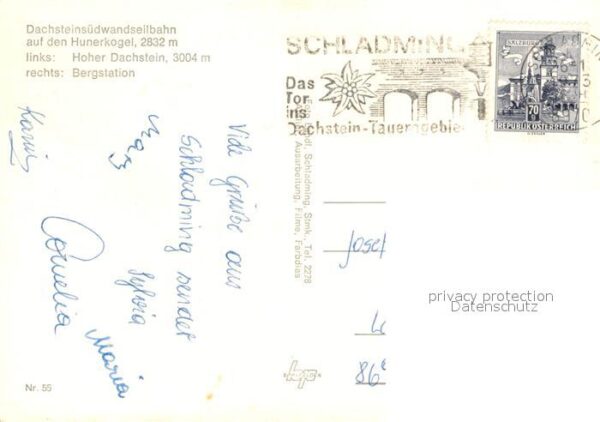 Dachsteinsüdwandseilbahn
auf den Hunerkogel, 2832 m
links: Hoher Dachstein, 3004 m
rechts: Bergstation
Viele Grüße aus
Schladming sendet
Sylvia
Maria
Cornelia
Karin
Nr. 55
Schladming, Stmk., Tel. 2278
Ausarbeitung, Filme, Farbdias
SCHLADMING
Das
Tor
ins
Dachstein-Tauerngebie
SALZBURG
70
REPUBLIK ÖSTERREICH
Josef
86
privacy protection
Datenschutz